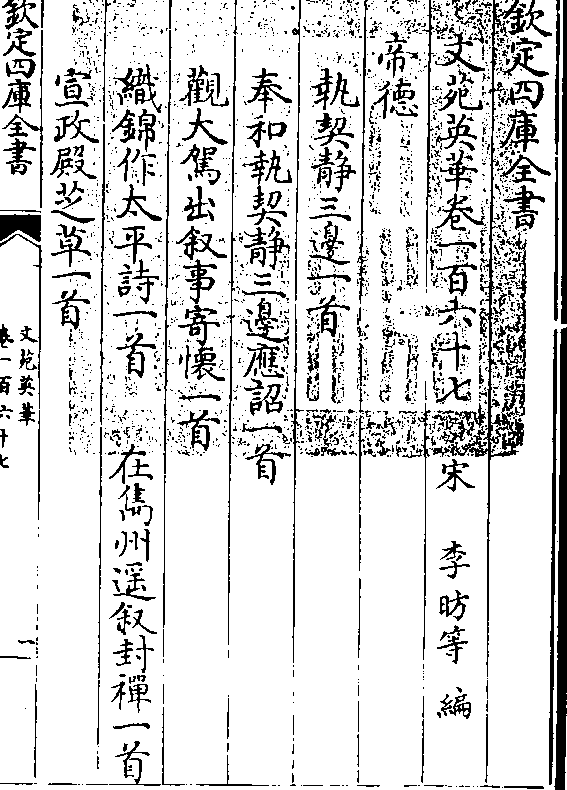 欽定四庫全書
文苑英華卷一百六十七 宋 李昉等 編
帝德
執契静三邊一首
奉和執契静三邊應詔一首
觀大駕出叙事寄懷一首
織錦作太平詩一首 在雋州遥叙封禪一首
宣政殿芝草一首
欽定四庫全書
文苑英華
卷一百六十七
一